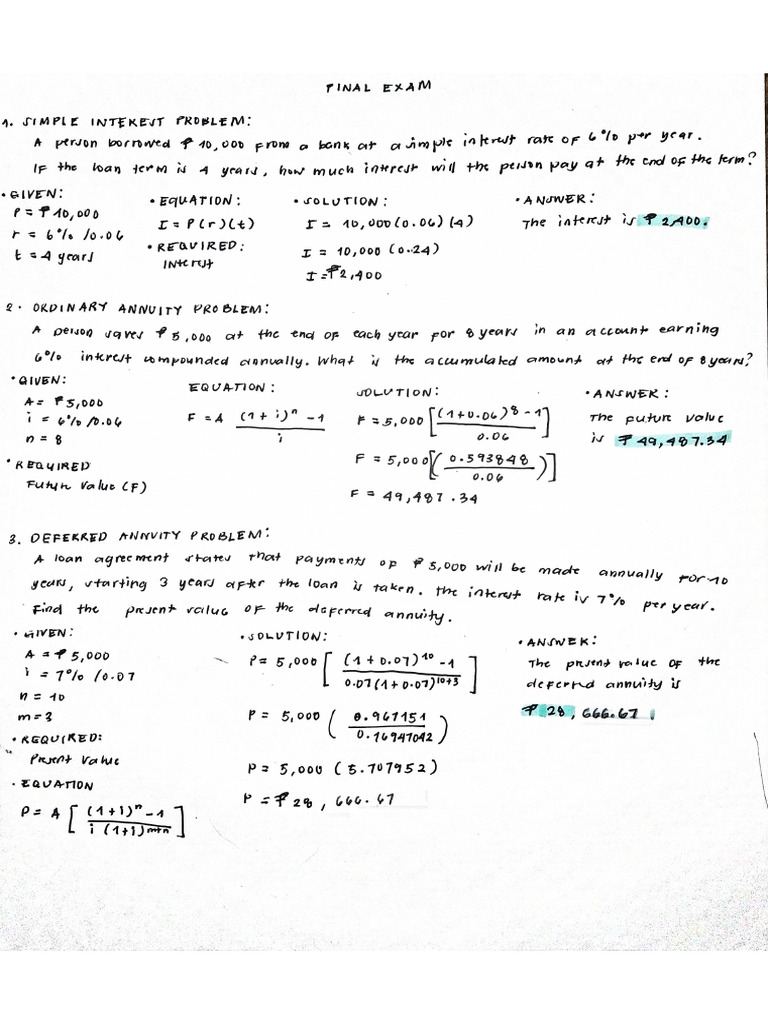 FINAL EXAM
1. SIMPLE INTEREST PROBLEM:
A person borrowed ₱ 10,000 from a bank at a simple interest rate of 6% per year.
If the loan term is 4 years, how much interest will the person pay at the end of the term?
• GIVEN:
P = ₱ 10,000
r = 6% / 0.06
t = 4 years
• EQUATION:
I = P(r)(t)
• REQUIRED:
Interest
• SOLUTION:
I = 10,000 (0.06) (4)
I = 10,000 (0.24)
I = ₱2,400
• ANSWER:
The interest is ₱ 2,400.
2. ORDINARY ANNUITY PROBLEM:
A person saves ₱ 5,000 at the end of each year for 8 years in an account earning
6% interest compounded annually. What is the accumulated amount at the end of 8 years?
• GIVEN:
A = ₱ 5,000
i = 6% / 0.06
n = 8
• REQUIRED
Future Value (F)
EQUATION:
F = A (1 + i)^n - 1 / i
SOLUTION:
F = 5,000 [(1+0.06)^8 - 1 / 0.06]
F = 5,000 [(0.593848 / 0.06)]
F = 49,487.34
• ANSWER:
The future value
is ₱ 49,487.34
3. DEFERRED ANNUITY PROBLEM:
A loan agreement states that payments of ₱ 5,000 will be made annually for 10
years, starting 3 years after the loan is taken. The interest rate is 7% per year.
Find the present value of the deferred annuity.
• GIVEN:
A = ₱ 5,000
i = 7% / 0.07
n = 10
m = 3
• REQUIRED:
Present Value
• EQUATION
P = A [(1+i)^n - 1 / i (1+i)^m+n]
• SOLUTION:
P = 5,000 [(1 + 0.07)^10 - 1 / 0.07(1+0.07)^10+3]
P = 5,000 (0.967151 / 0.16947042)
P = 5,000 (5.707952)
P = ₱ 28,666.67
• ANSWER:
The present value of the
deferred annuity is
₱ 28,666.67